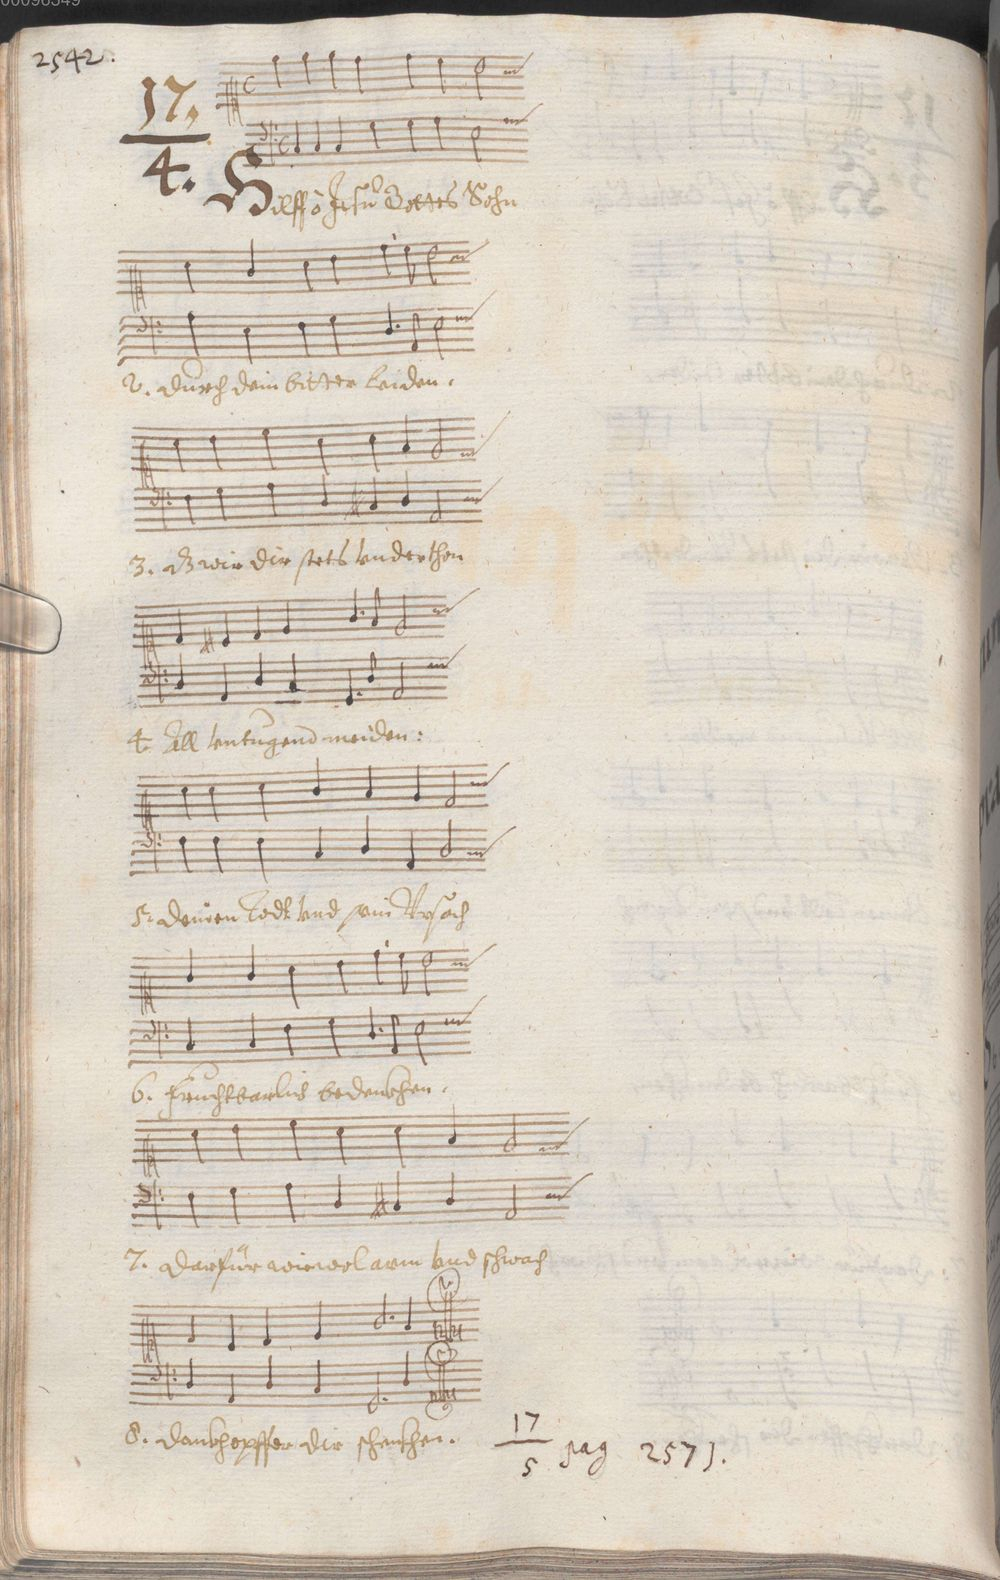 00098549
2542.
17.
4.
Hilff ô Jesu Gottes Sohn
2. durch dein bitter leiden.
3. dz wir dir stets vnderthon
4. All vntugend meiden:
5. deinen Todt vnd sein Vrsach
6. fruchtbarlich bedenkhen.
7. darfür wiewol arm vnd schwach
8. dankhopffer dir schenkhen.
17
5 pag 2571.